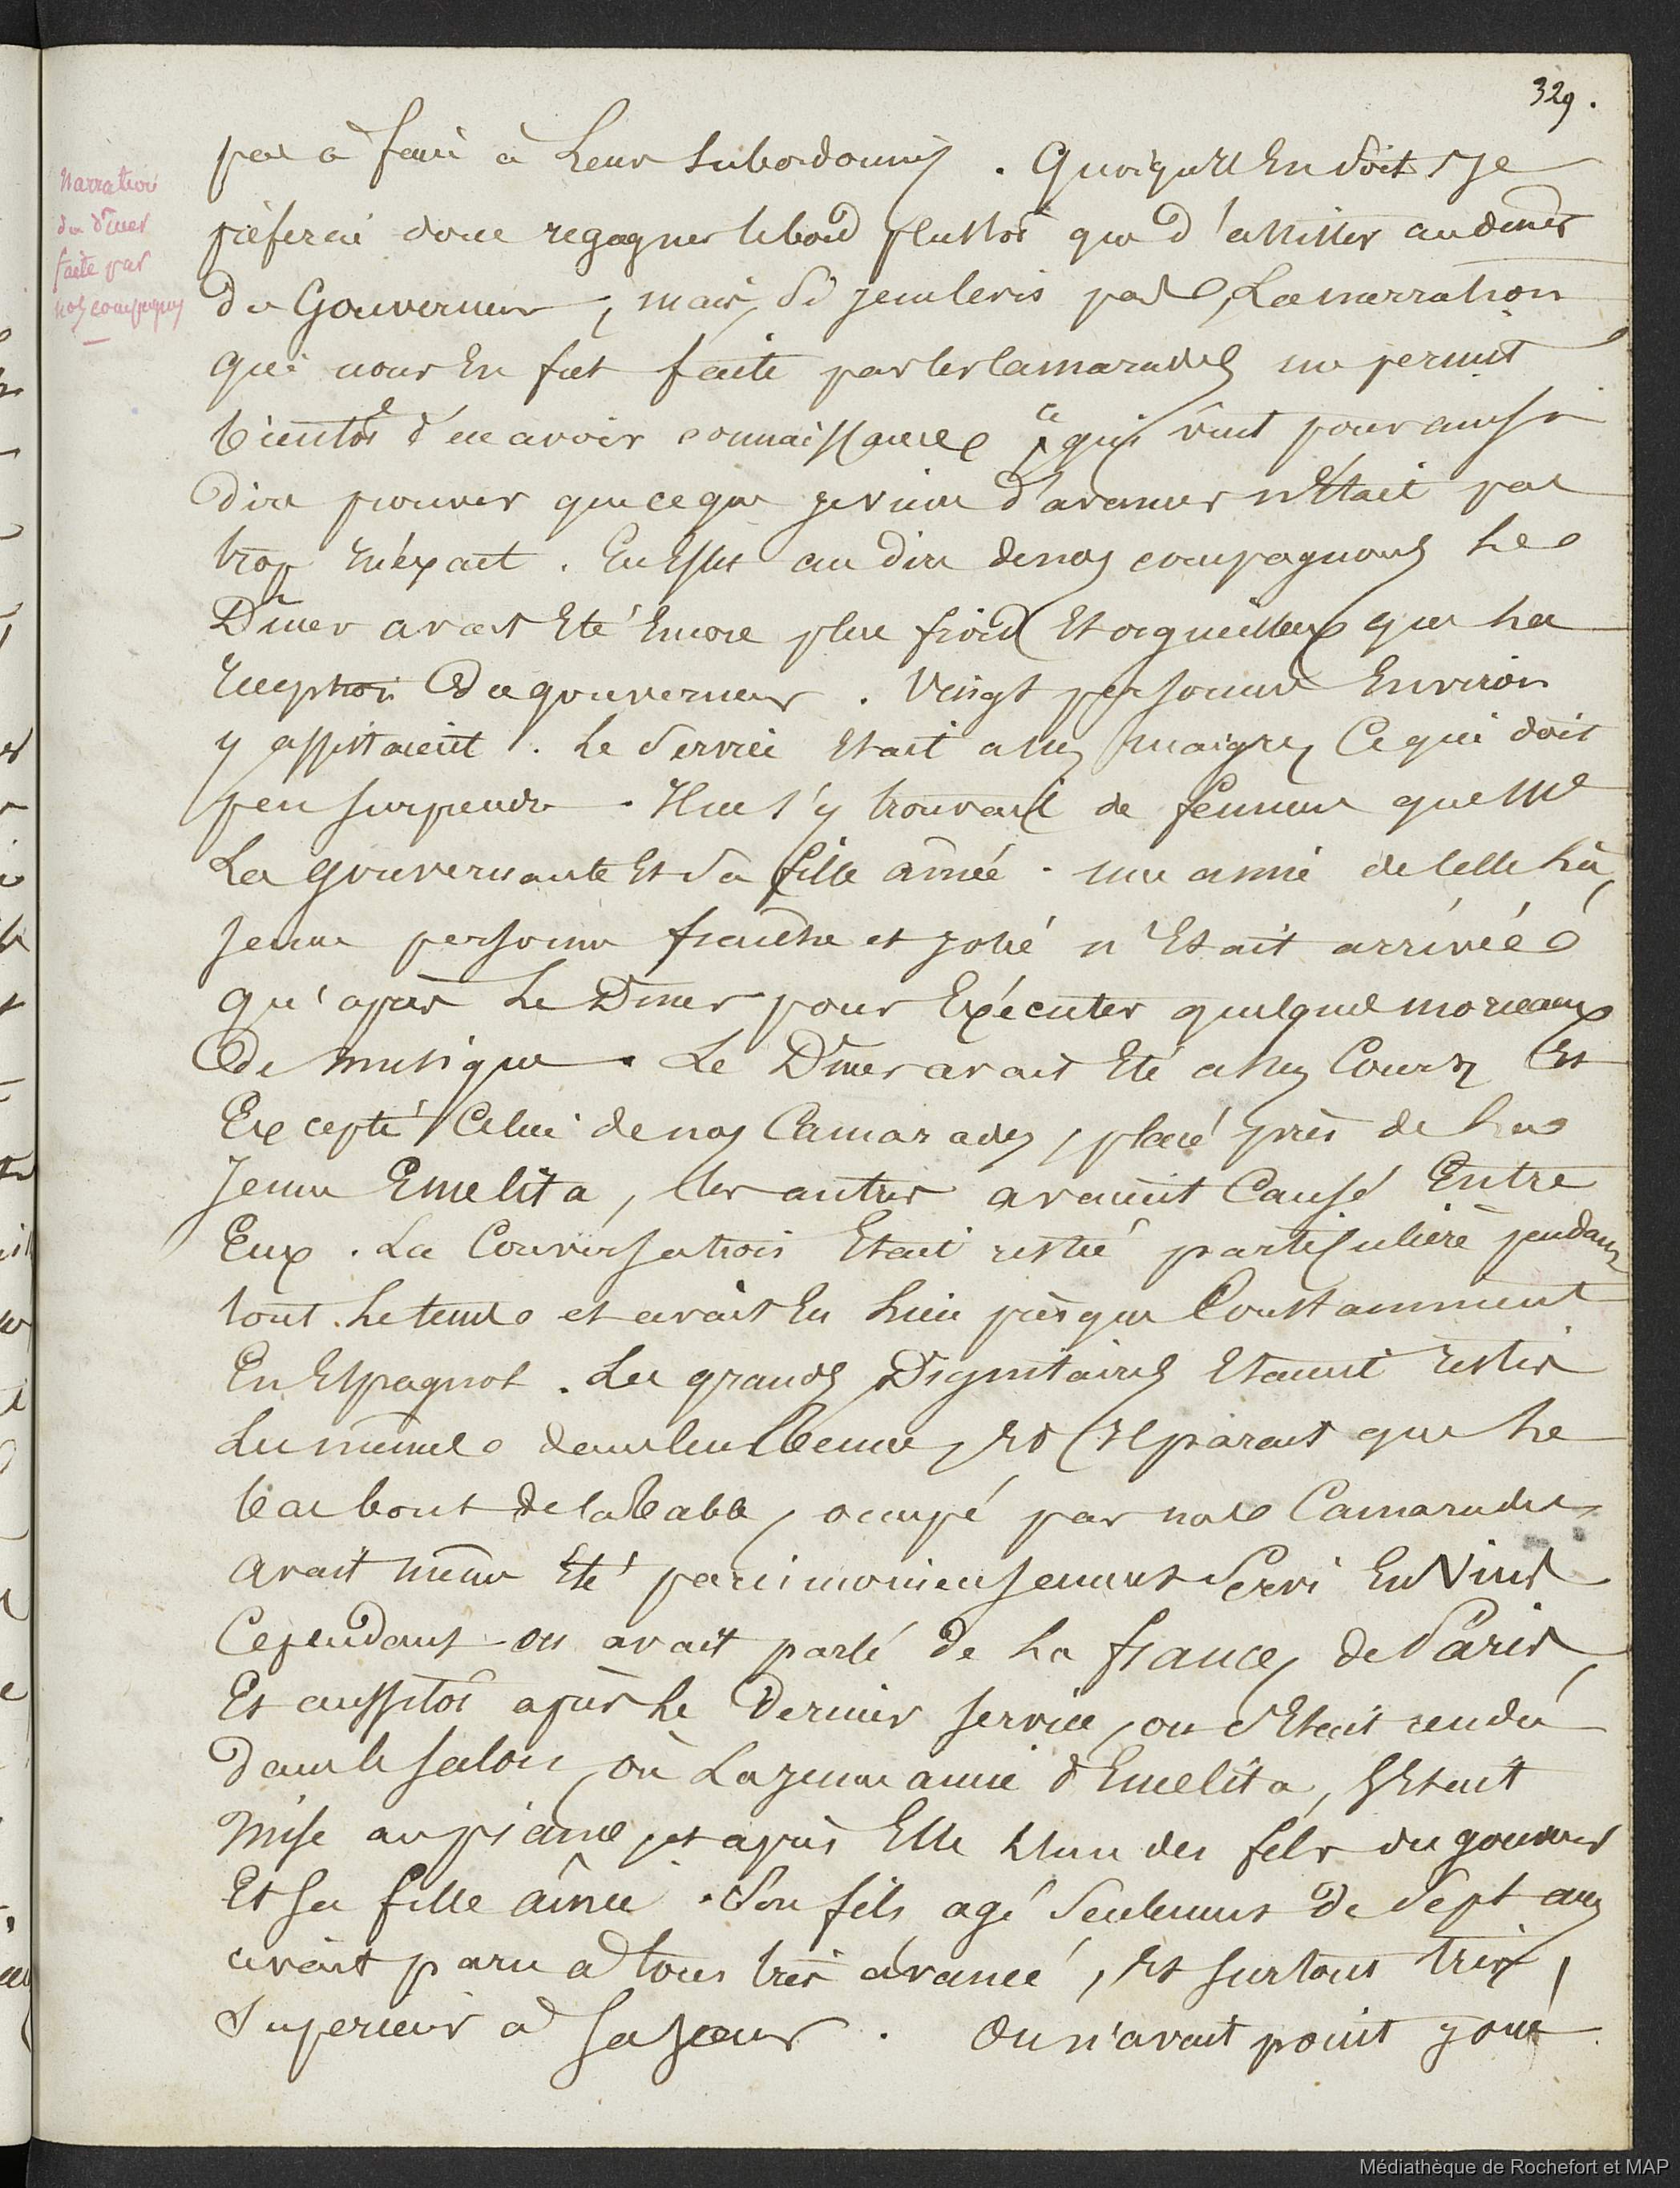 329.
Narration
du dîner
faite par
nos compagnons
pas à faire à Leur subordonnés. Quoiqu'il En soit, Je
préferai donc regagner le bord plustot que d'assister au diner
du Gouverneur, mais, si je ne le vis pas, La narration
qui nous En fut faite par les Camarades me permit
bientôt d'en avoir connaissance ce qui vint pour ainsi
dire prouver que ce que je viens d'avancer n'était pas
trop inéxact. En effet au dire de nos compagnons Le
Dîner avait Eté Encore plus froid Et orgueilleux que La
reception du gouverneur. Vingt personnes Environ
y assistaient. Le Service Etait assez maigre, Ce qui doit
peu surprendre. Il ne s'y trouvait de femmes que Mme
La Gouvernante Et Sa fille ainée. une amie de Celle Là,
Jeune personne fraiche et jolie n'Etait arrivée
qu'après Le Diner pour Exécuter quelques morceaux
de musique. Le Dîner avait Eté assez Court, Et
Excepté Celui de nos Camarades, placé près de La
Jeune Emelita, les autres avaient Causé Entre
Eux. La Conversation Etait restée particulière pendant
tout Le tems et avait Eu Lieu presque Constamment
En Espagnol. Les grands Dignitaires Etaient restés
Les mêmes dans leur tenue, Et il parait que Le
bas bout de la table, occupé par nos Camarades
avait même Eté parcimonieusement Servi En Vins
Cependant on avait parlé de La france, de Paris,
Et aussitôt après Le Dernier service, on s'Etait rendu
dans le salon, où La jeune amie d'Emelita, s'Etait
mise au piano, et après Elle L'un des fils du gouverneur
Et sa fille ainée. Son fils agé Seulement de Sept ans
avait paru à tous très avancé, Et surtout très
Superieur à sa soeur. On n'avait point joué
Médiathèque de Rochefort et MAP